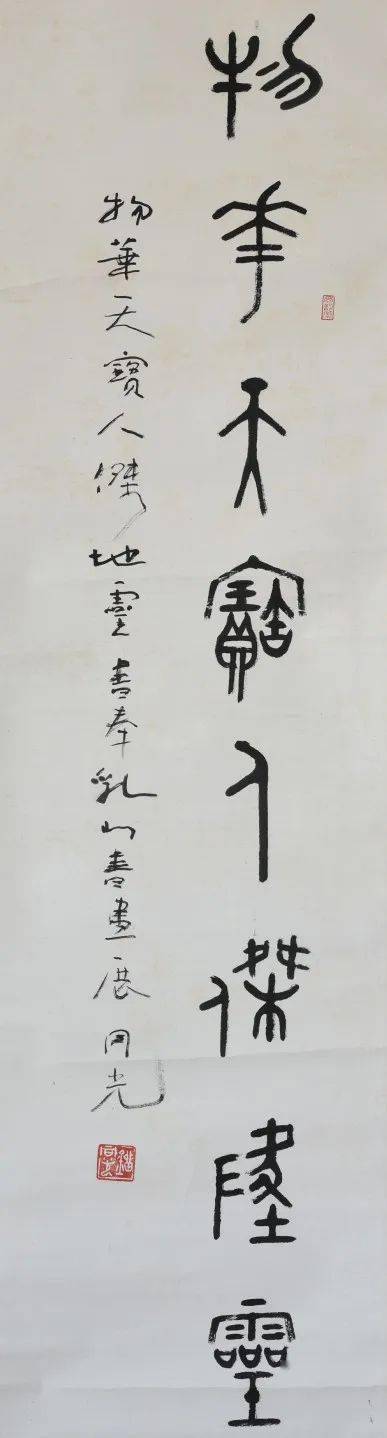 物華天寶人傑地靈
物華天寶人傑地靈書奉乳山書畫展 同光